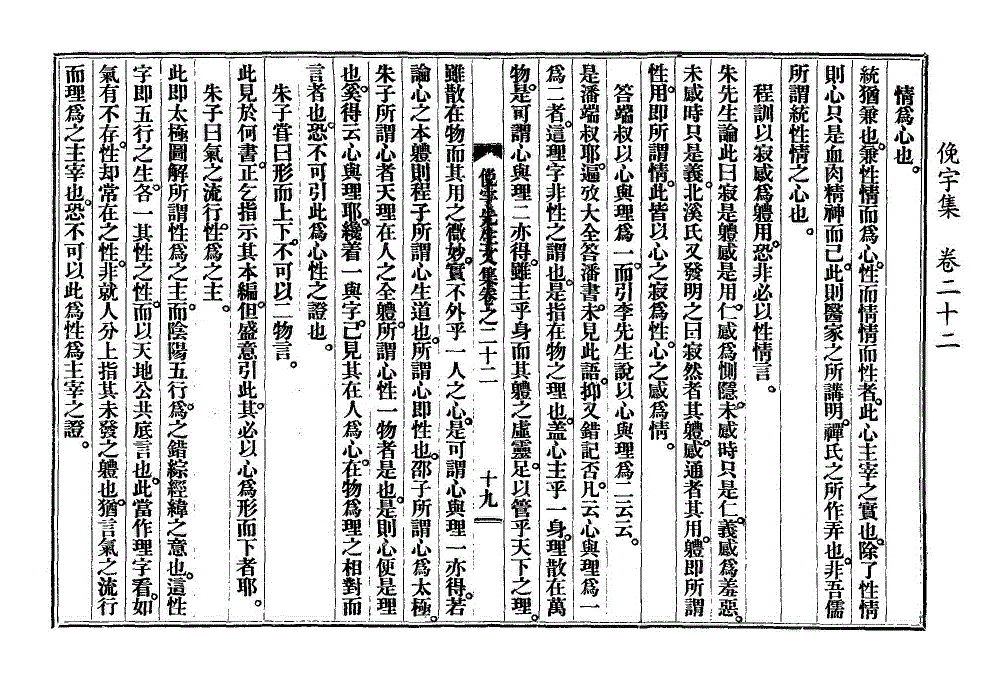 俛宇集 卷二十二
情爲心也。
統猶兼也。兼性情而爲心。性而情情而性者。此心主宰之實也。除了性情
則心只是血肉精神而已。此則醫家之所講明。禪氏之所作弄也。非吾儒
所謂統性情之心也。
程訓以寂感爲體用。恐非必以性情言。
朱先生論此曰寂是軆感是用。仁感爲惻隱。未感時只是仁。義感爲羞惡。
未感時只是義。北溪氏又發明之曰寂然者其軆。感通者其用。軆卽所謂
性。用卽所謂情。此皆以心之寂爲性。心之感爲情。
答端叔以心與理爲一。而引李先生說以心與理爲二云云。
是潘端叔耶。遍攷大全答潘書。未見此語。抑又錯記否。凡云心與理爲一
爲二者。這理字非性之謂也。是指在物之理也。蓋心主乎一身。理散在萬
物。是可謂心與理二亦得。雖主乎身而其軆之虛靈。足以管乎天下之理。
俛宇先生文集卷之二十二 十九
雖散在物而其用之微妙。實不外乎一人之心。是可謂心與理一亦得。若
論心之本軆則程子所謂心生道也。所謂心卽性也。邵子所謂心爲太極。
朱子所謂心者天理在人之全軆。所謂心性一物者是也。是則心便是理
也。奚得云心與理耶。纔着一與字。已見其在人爲心。在物爲理之相對而
言者也。恐不可引此爲心性之證也。
朱子嘗曰形而上下。不可以二物言。
此見於何書。正乞指示其本編。但盛意引此。其必以心爲形而下者耶。
朱子曰氣之流行。性爲之主。
此卽太極圖解所謂性爲之主。而陰陽五行。爲之錯綜經緯之意也。這性
字卽五行之生。各一其性之性。而以天地公共底言也。此當作理字看。如
氣有不存。性却常在之性。非就人分上指其未發之軆也。猶言氣之流行
而理爲之主宰也。恐不可以此爲性爲主宰之證。